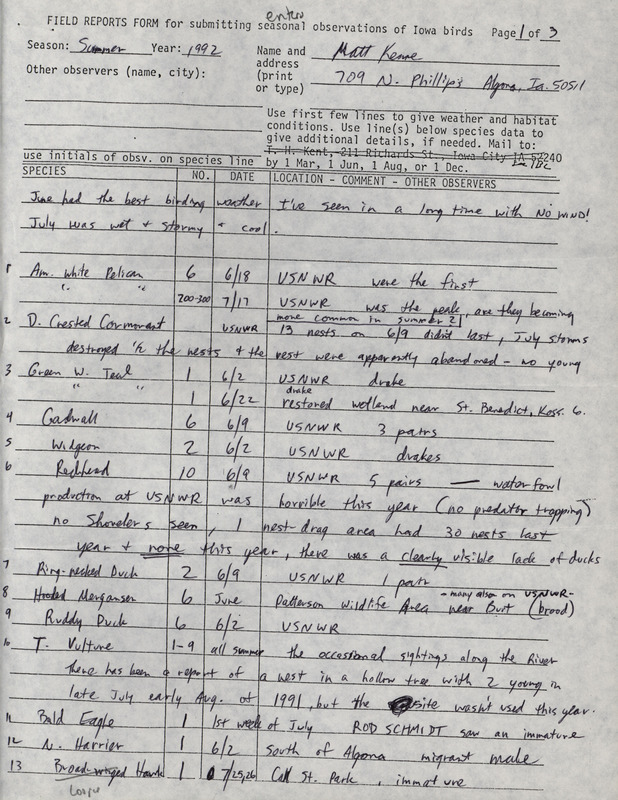 enters
FIELD REPORTS FORM for submitting seasonal observations of Iowa birds Page 1 of 3
Season: Summer Year: 1992 Name and Matt Kenne
address
Other observers (name, city): (print 709 N. Phillips Algona, Ia. 50511
or type)
Use first few lines to give weather and habitat
conditions. Use line(s) below species data to
give additional details, if needed. Mail to:
T. H. Kent, 211 Richards St., Iowa City IA 52240
use initials of obsv. on species line by 1 Mar, 1 Jun, 1 Aug, or 1 Dec.
SPECIES NO. DATE LOCATION - COMMENT - OTHER OBSERVERS
June had the best birding weather I've seen in a long time with NO WIND!
July was wet + stormy + cool.
1 Am. White Pelican 6 6/18 USNWR were the first
" " 200-300 7/17 USNWR was the peak, are they becoming
more common in summer?
2 D. Crested Cormorant USNWR 13 nests on 6/9 didn't last, July storms
destroyed 1/2 the nests + the rest were apparently abandoned - no young
3 Green W. Teal 1 6/2 USNWR drake
" " 1 6/22 drake restored wetland near St. Benedict, Koss. Co.
4 Gadwall 6 6/9 USNWR 3 pairs
5 Widgeon 2 6/2 USNWR drakes
6 Redhead 10 6/9 USNWR 5 pairs — waterfowl
production at USNWR was horrible this year (no predator trapping)
no Shovelers seen, 1 nest-drag area had 30 nests last
year + none this year, there was a clearly visible lack of ducks
7 Ring-necked Duck 2 6/9 USNWR 1 pair
- many also on USNWR -
8 Hooded Merganser 6 June Patterson Wildlife Area near Burt (brood)
9 Ruddy Duck 6 6/2 USNWR
10 T. Vulture 1-9 all summer the occasional sightings along the River
There has been a report of a nest in a hollow tree with 2 young in
late July early Aug. of 1991, but the site wasn't used this year.
11 Bald Eagle 1 1st week of July ROD SCHMIDT saw an immature
12 N. Harrier 1 6/2 South of Algona migrant male
13 Broad-winged Hawk 1 7/25,26 Call St. Park, immature